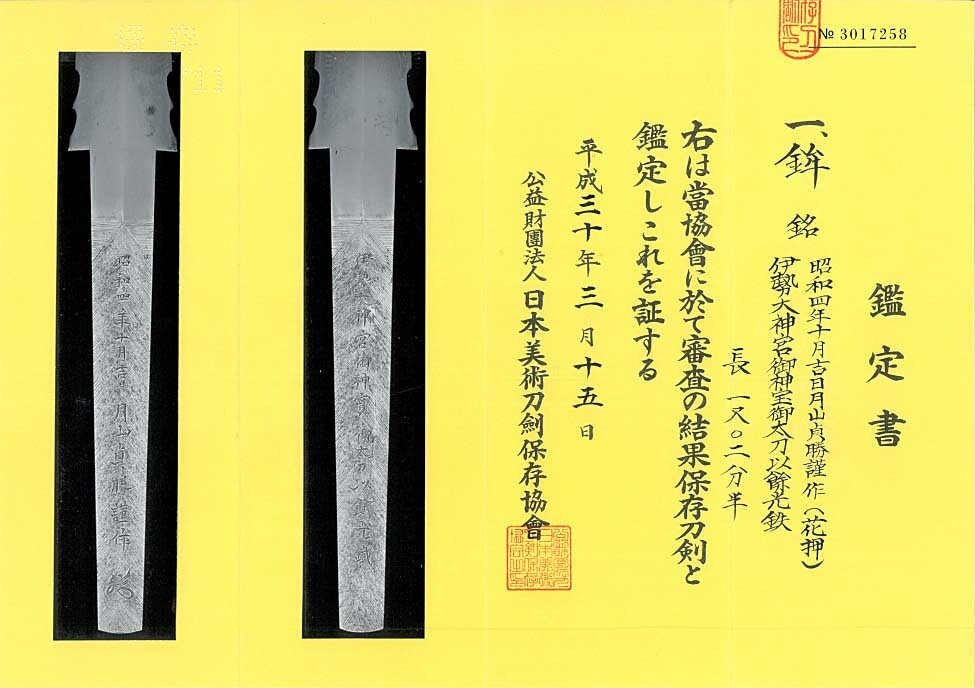 № 3017258
鑑定書
一、鉾 銘 昭和四年十月吉日月山貞勝謹作（花押）
伊勢大神宮御神宝御太刀以餘光鉄
長 一尺〇二分半
右は當協會に於て審査の結果保存刀剣と
鑑定しこれを証する
平成三十年三月十五日
公益財團法人日本美術刀劍保存協會
昭和四年十月吉日月山貞勝謹作